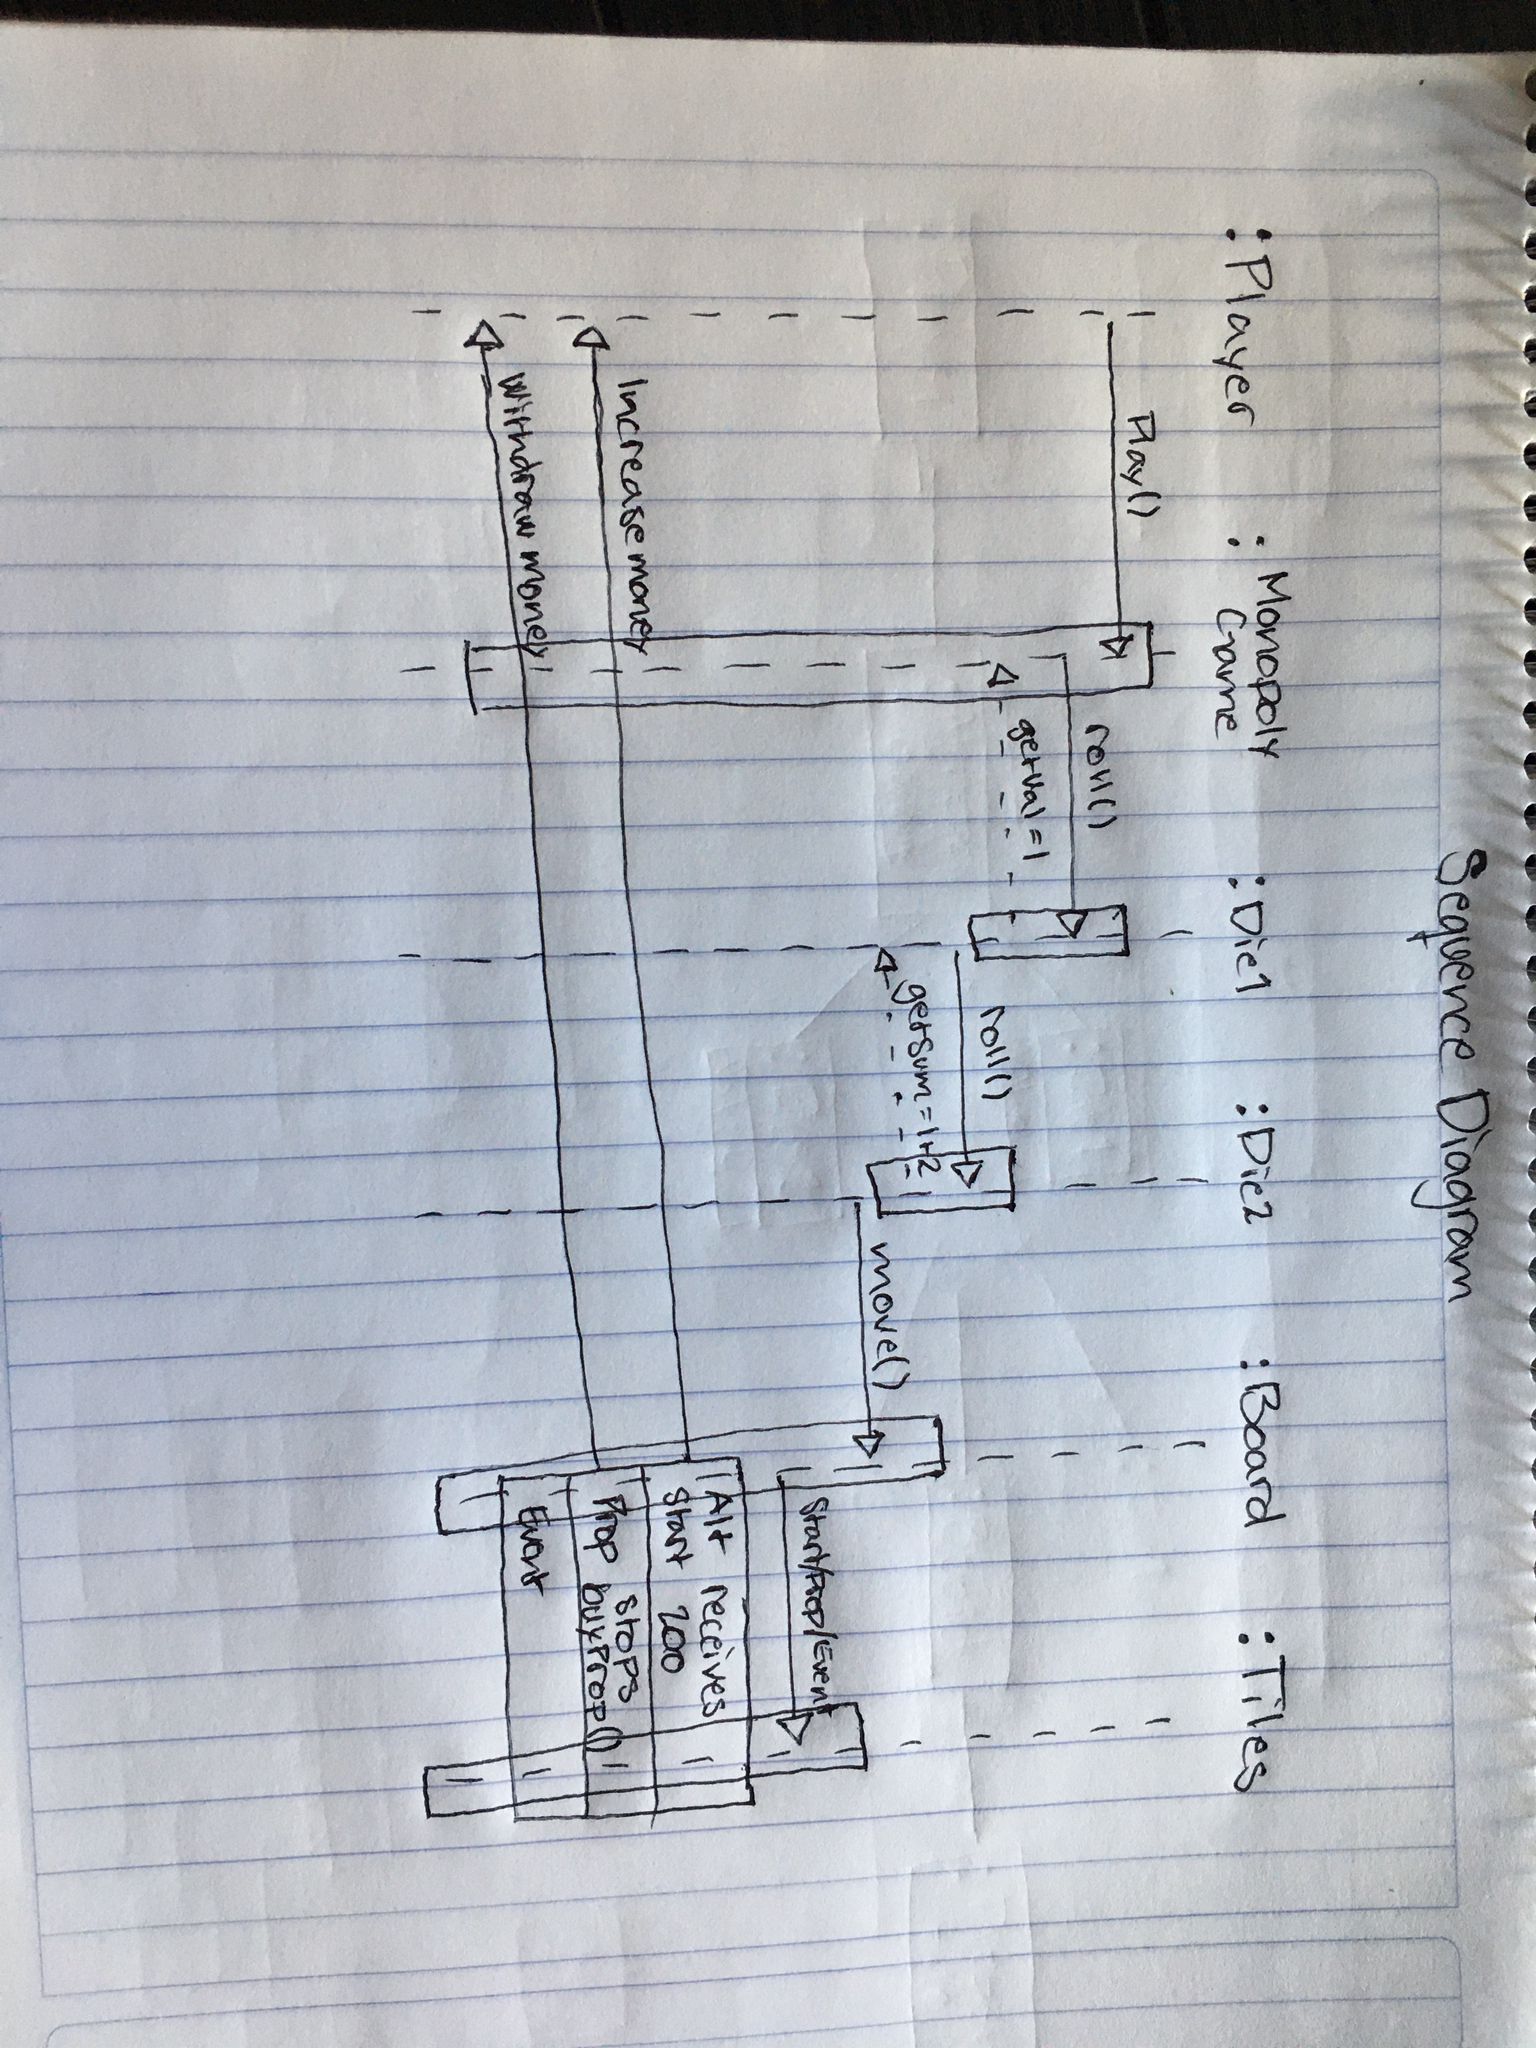 Sequence Diagram
:Player
:Monopoly
Game
:Die1
:Die2
:Board
:Tiles
Play()
roll()
getVal=1
roll()
getSum=1+2
move()
Start/Prop/Event
Alt receives
Start 200
Prop stops
buyProp()
Event
Increase money
Withdraw money